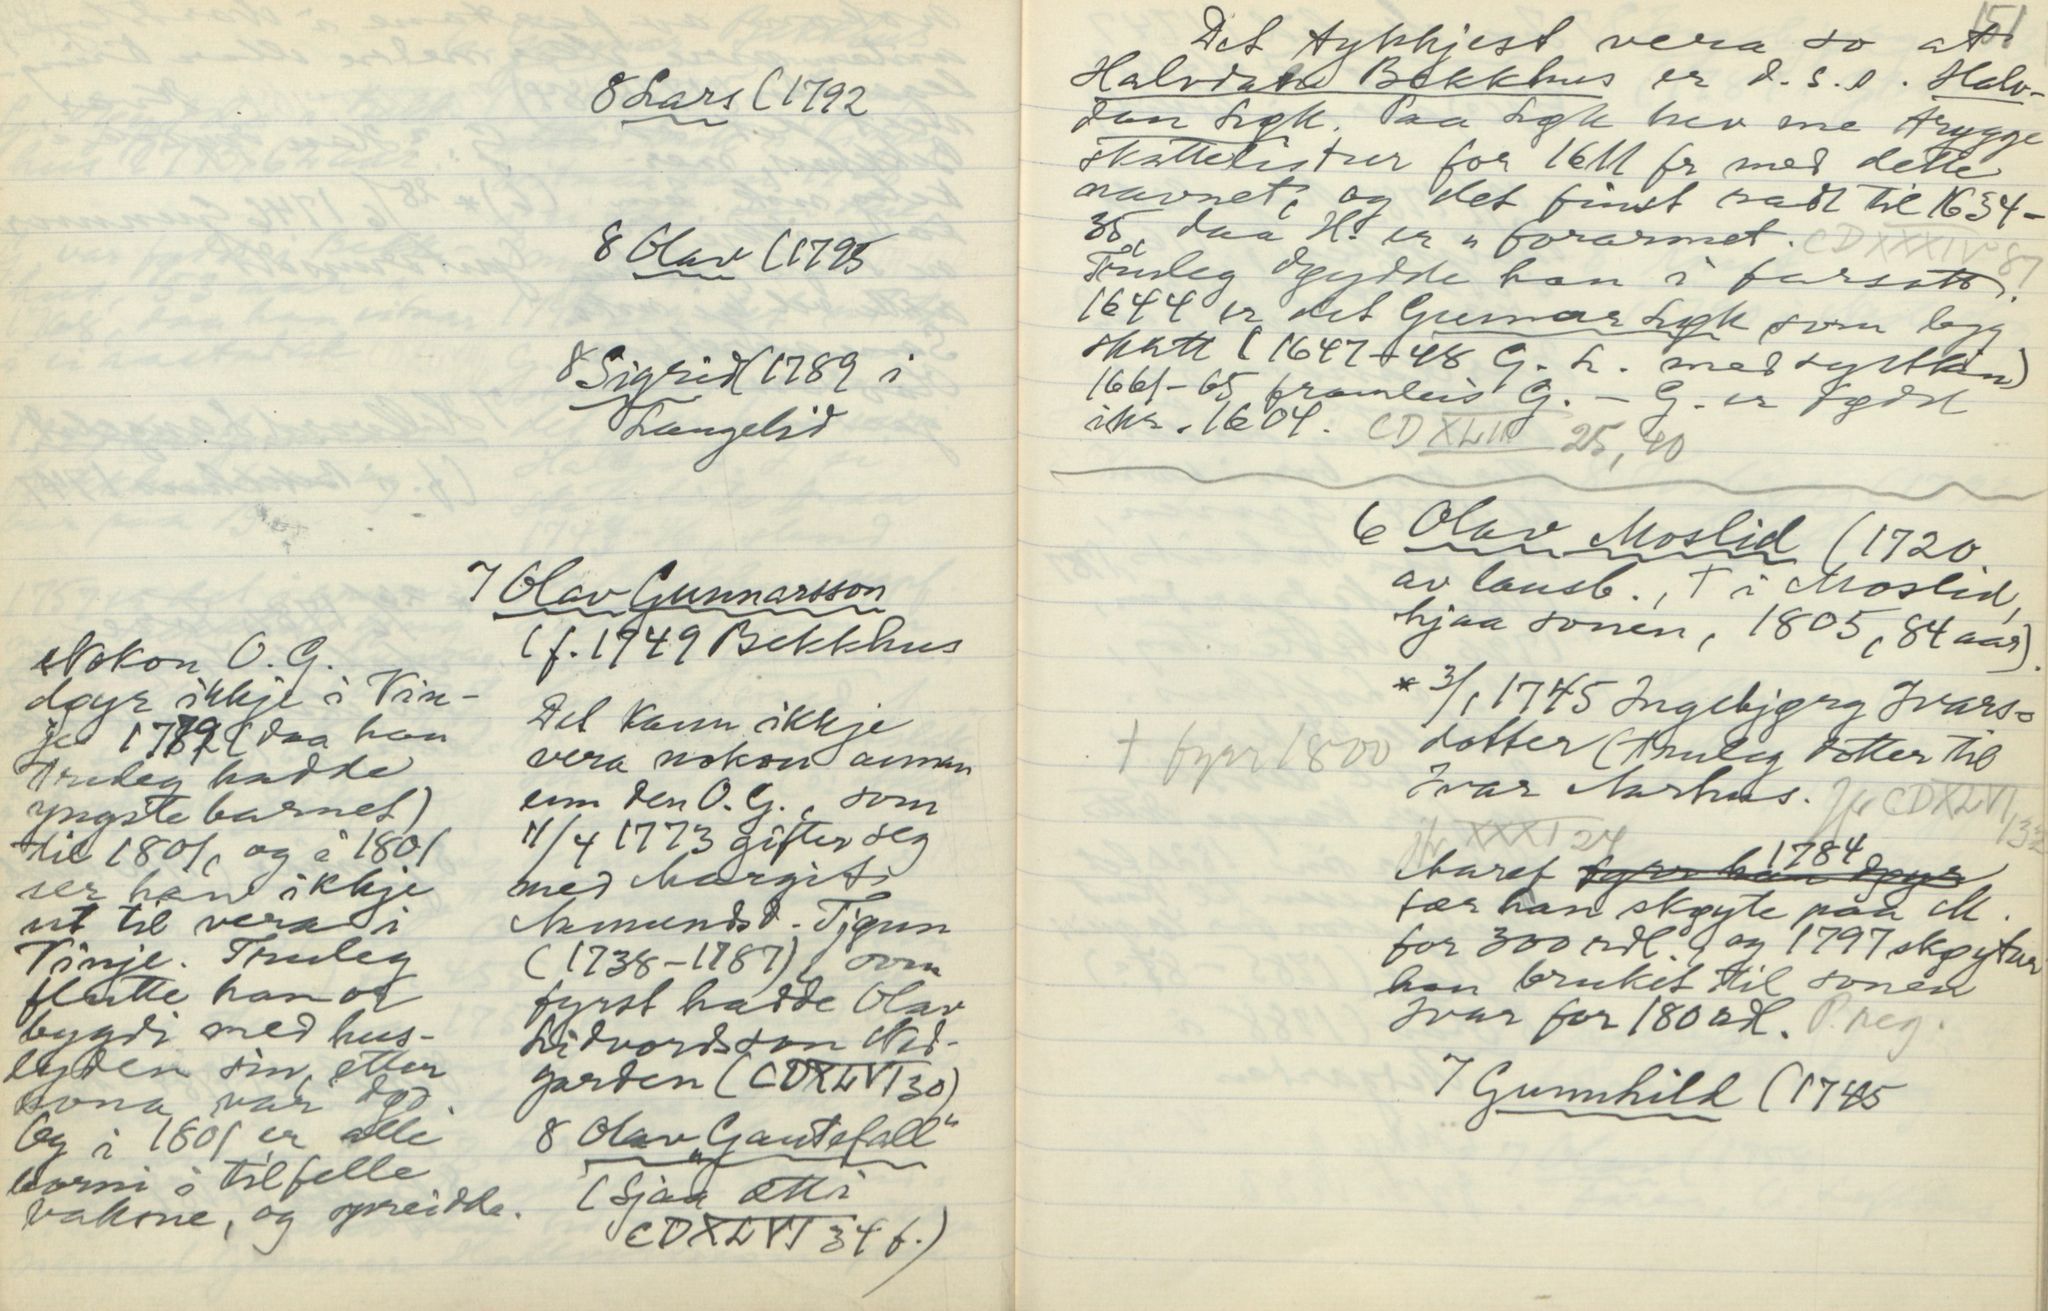 8 Lars (1792
8 Olav (1795
8 Sigrid (1789 i
Langelid
7 Olav Gunnarsson
(f. 1749 Bekkhus
Det kann ikkje
vera nokon annan
enn den O. G., som
11/4 1773 gifter seg
med Margit
Aamundsd. Tjønn
(1738-1787), som
fyrst hadde Olav
Lidvordsson Ned-
garden (CDXLVI 30)
8 Olav "Gautefall"
(Sjaa ætti
CDXLVI 34 f.)
Nokon O. G.
døyr ikkje i Vin-
je 1789 (daa han
truleg hadde
yngste barnet)
til 1801, og i 1801
ser han ikkje
ut til vera i
Vinje. Truleg
flutte han or
bygdi med hus-
lyden sin, etter
kona var død.
Og i 1801 er alle
borni i tilfelle
vaksne, og spreidde.
151
Det tykkjest vera so at
Halvdan Bekkhus er d. s. s. Halv-
dan Løk. Paa Løk hev me trygge
skattelistur for 1611 fr med dette
navnet, og det finst radt til 1634-
35, daa H. er "forarmet. CDXXXIV 87
Truleg døydde han i farsott.
1644 er det Gunnar Løk som legg
skatt (1647-48 G. L. med systkin)
1661-65 framleis G. - G. er fødd
ikr. 1604. CDXLIII 25, 40
6 Olav Moslid (1720
av lausb., † i Moslid,
hjaa sonen, 1805, 84 aar).
* 3/1 1745 Ingebjørg Ivars-
dotter (truleg dotter til
Ivar Aarhus. Jfr CDXLVI/132
† fyr 1800
Jfr XXXI 24
Maret fyrr han døyr 1784
fær han skøyte paa M.
for 300 rdl., og 1797 skøytar
han bruket til sonen
Ivar for 180 rdl. P. reg.
7 Gunnhild (1745